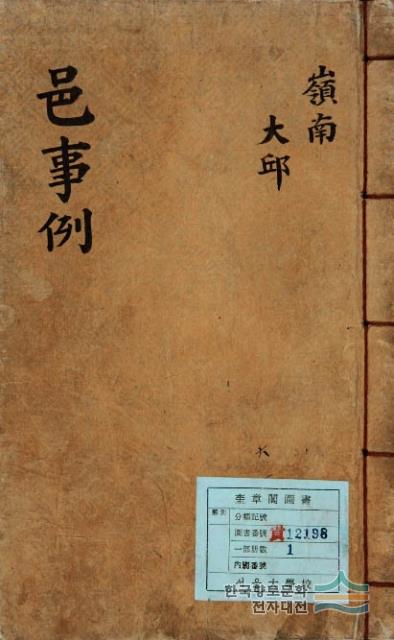 嶺南
大邱
邑事例
奎章閣圖書
類別
分類記號
圖書番號 12198
一部册數 1
內國番號
서울大學校
한국향토문화
전자대전